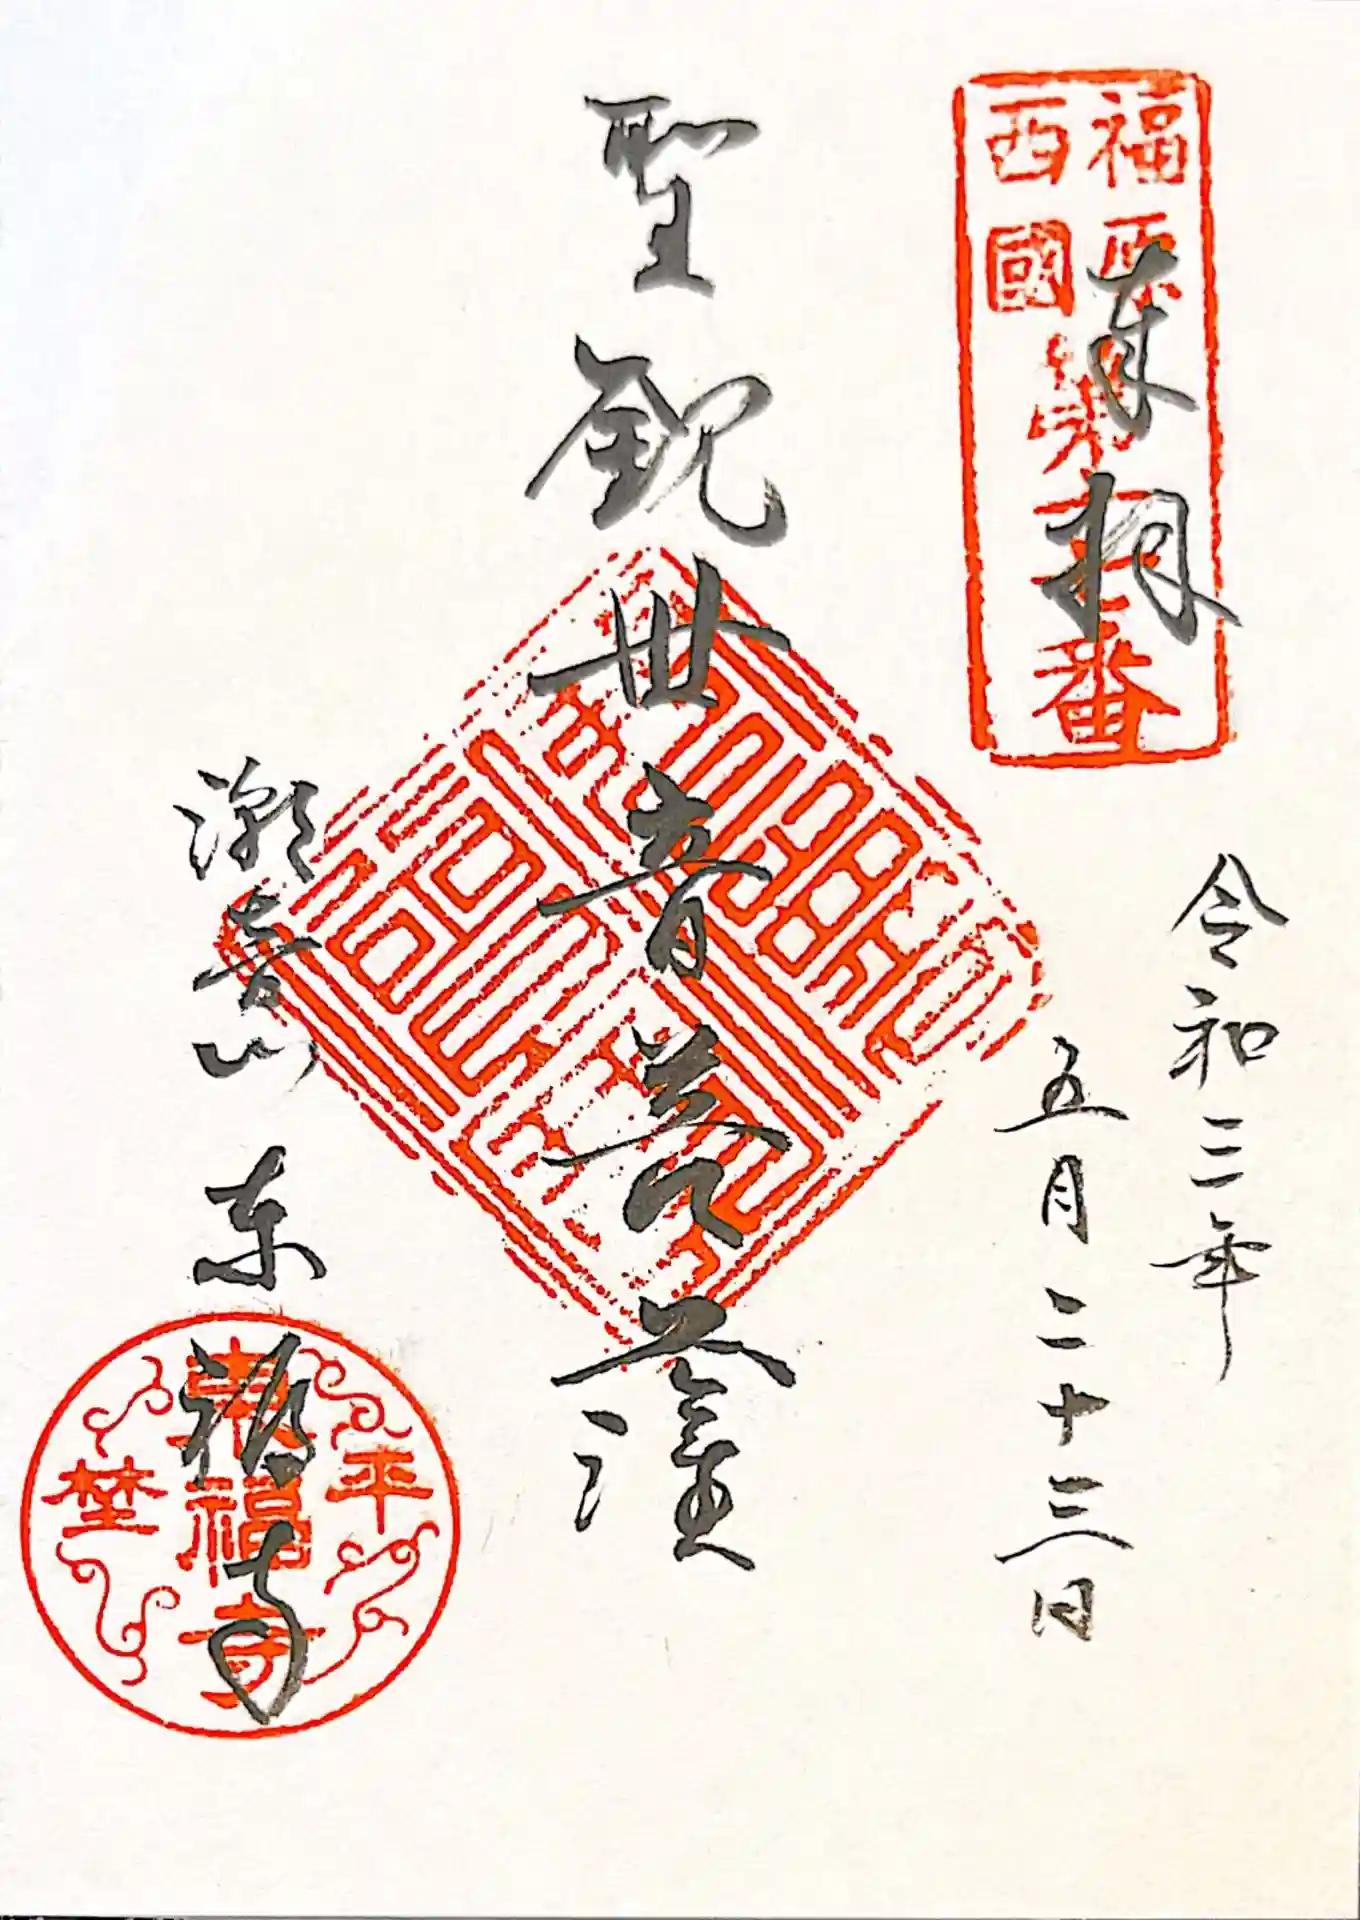 福原
西國
第
番
奉拝
令和三年
五月二十三日
聖観世音菩薩
潮音山 東福寺
平埜
東福寺